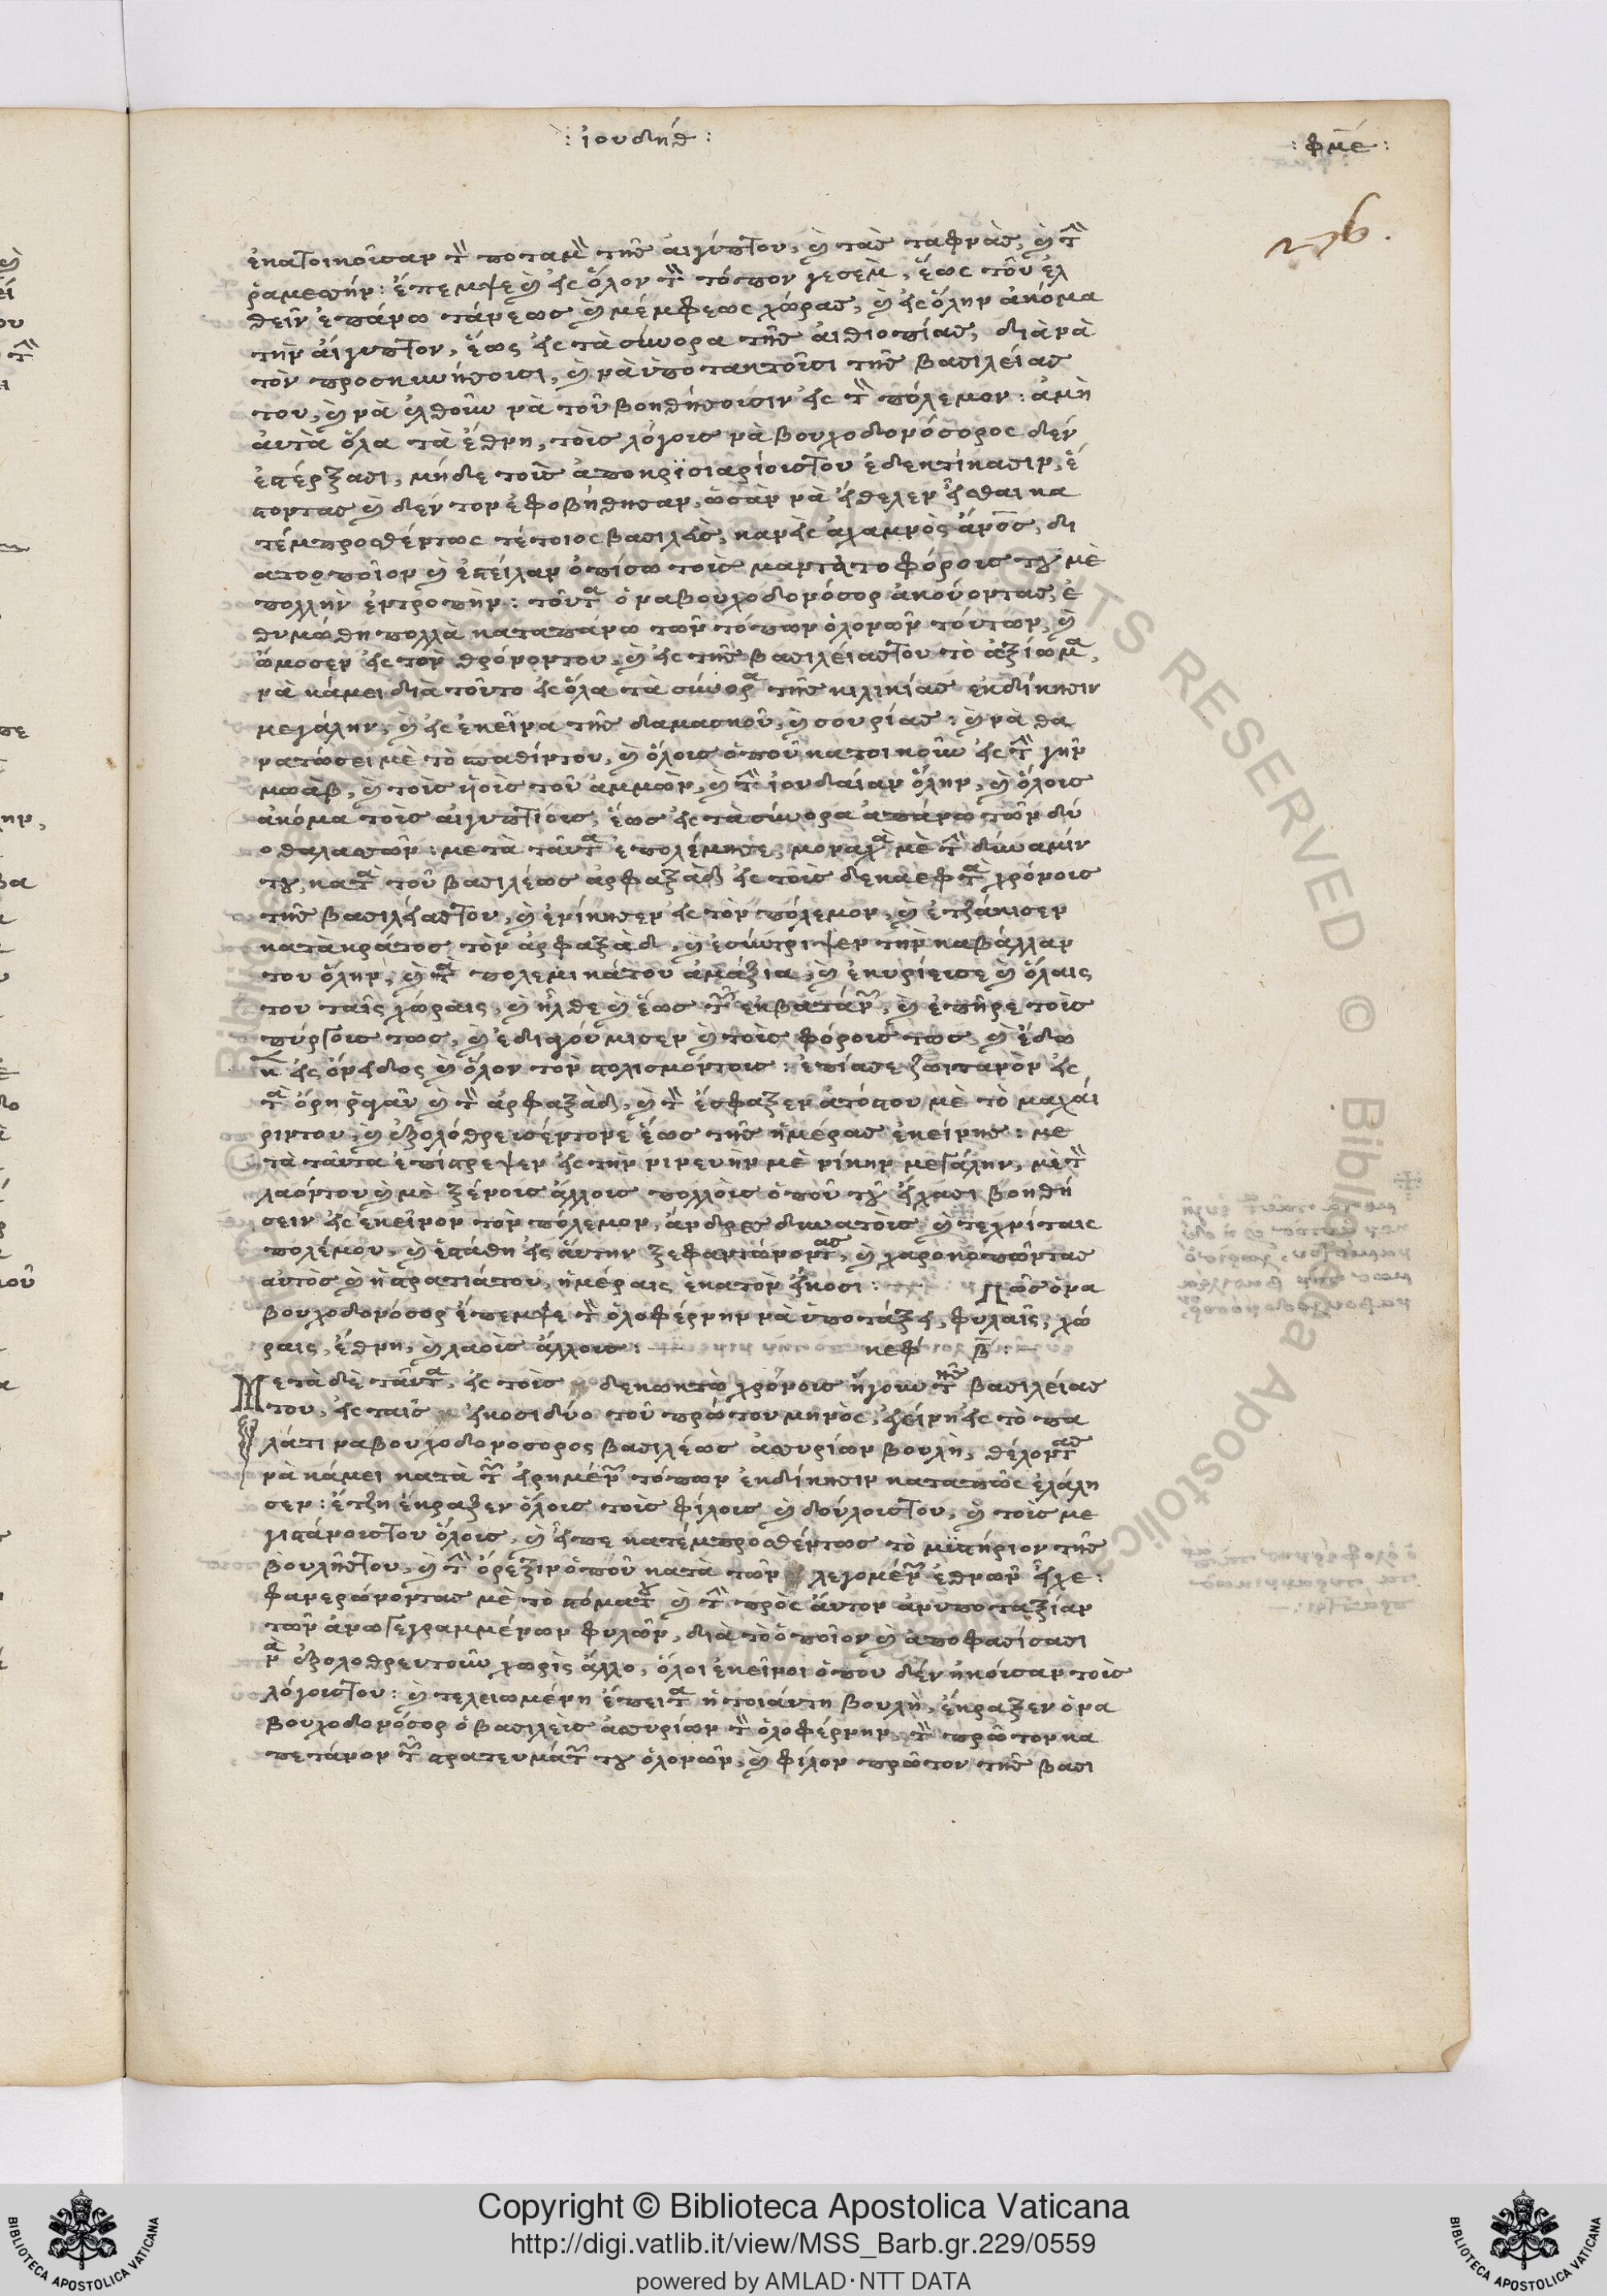 : ἰουδηθ :
: φμε :
276.
ἐκατοικοῦσαν τὸν ποταμὸν τῆς αἰγύπτου, καὶ τὰς ταφνὰς, καὶ τὴν
ῥαμεσσήν: ἔπεμψε καὶ εἰς ὅλον τὸν τόπον γεσεμ, ἕως τοῦ ἐλ
θεῖν ἐπάνω τάνεως καὶ μέμφεως χώρας, καὶ εἰς ὅλην ἀκόμα
τὴν αἴγυπτον, ἕως εἰς τὰ σύνορα τῆς αἰθιοπίας, διὰ νὰ
τὸν προσκυνήσουσι, καὶ νὰ ὑποτακτοῦσι τῆς βασιλείας
του, καὶ νὰ ἐλθοῦν νὰ τοῦ βοηθήσουσιν εἰς τὸν πόλεμον: ἀμὴ
αὐτὰ ὅλα τὰ ἔθνη, τοὺς λόγους ναβουχοδονόσορος δὲν
ἐστέρξασι, μήδε τοὺς ἀποκρισιαρίους του ἐδεκτίκασιν, ἔ
στοντας καὶ δὲν τον ἐφοβήθησαν, ὡσὰν νὰ ἤθελεν εἶσθαι κα
τέμπροσθέντως τέτοιος βασιλεὺς, καν εἷς ἀχαμνὸς ἄνος, δι
ατο ὁποῖον καὶ ἐστείλαν ὀπίσω τοὺς μαντατοφόρους του μὲ
πολλὴν ἐντροπὴν: τοῦτα ὁ ναβουχοδονόσορ ἀκούοντας, ἐ
θυμώθη πολλὰ καταπάνω τῶν τόπων ὁλονῶν τούτων, καὶ
ὤμοσεν εἰς τὸν θρόνον του, καὶ εἰς τῆς βασιλείας του τὸ ἀξίωμα,
νὰ κάμει διὰ τοῦτο εἰς ὅλα τὰ σύνορα τῆς κιλικίας ἐκδίκησιν
μεγάλην, καὶ εἰς ἐκεῖνα τῆς δαμασκοῦ, καὶ σουρίας: καὶ νὰ θα
νατώσει μὲ τὸ σπαθίν του, καὶ ὅλους ὁποῦ κατοικοῦν εἰς τὴν γῆν
μωὰβ, καὶ τοὺς υἱοὺς τοῦ ἀμμὼν, καὶ τὴν ἰουδαίαν ὅλην, καὶ ὅλους
ἀκόμα τοὺς αἰγυπτίους, ἕως εἰς τὰ σύνορα ἀπάνω τῶν δύ
ο θαλασσῶν: μετὰ ταῦτα ἐπολέμησε, μοναχὰ μὲ τὴν δύναμίν
του, κατὰ τοῦ βασιλέως ἀρφαξὰδ εἰς τοὺς δεκαεφτὰ χρόνους
τῆς βασιλείας του, καὶ ἐνίκησεν εἰς τὸν πόλεμον, καὶ ἐτζάκισεν
κατὰ κράτος τὸν ἀρφαξὰδ, καὶ ἐσύντριψεν τὴν καβάλλαν
του ὅλην, καὶ τὰ πολεμικά του ἀμάξια, καὶ ἐκυρίευσε καὶ ὅλαις
του ταῖς χώραις, καὶ ἦλθε καὶ ἕως τῶν ἐκβατάνων, καὶ ἐπῆρε τοὺς
πύργους τως, καὶ ἐδιαγούμισεν καὶ τοὺς φόρους τως, καὶ ἐδω
κεν εἰς ὄνειδος καὶ ὅλον τὸν στολισμόν τους: ἐπίασε ζωντανὸν εἰς
τὰ ὄρη ῥαγαῦ καὶ τὸν ἀρφαξὰδ, καὶ τὸν ἔσφαξεν ἀτόςτου μὲ τὸ μαχαί
ριν του, καὶ ἐξολόθρευσέν τονε ἕως τῆς ἡμέρας ἐκείνης: με
τὰ ταῦτα ἐπίστρεψεν εἰς τὴν νινευὴν μὲ νίκην μεγάλην, μὲ τὸν
λαόν του καὶ μὲ ξένους ἄλλους πολλοὺς ὁποῦ τοῦ εἴχασι βοηθή
σειν εἰς ἐκεῖνον τὸν πόλεμον, ἄνδρες δυνατοὺς καὶ τεχνίταις
πολέμου, καὶ ἐστάθη εἰς αὐτην ξεφαντώνοντας, καὶ χαροκοπῶντας
αὐτὸς καὶ ἡ στρατιά του, ἡμέραις ἑκατὸν εἴκοσι: Πῶς ὁ να
βουχοδονόσορ ἔπεμψε τὸν ὁλοφέρνην νὰ ὑποτάξει, φυλαῖς, χώ
ραις, ἔθνη, καὶ λαοὺς ἄλλους: κεφ β :
Μετὰ δὲ ταῦτα, εἰς τοὺς δεκωκτὼ χρόνους ἤγουν τῆς βασιλείας
του, εἰς ταῖς εἴκοσιδύο τοῦ πρώτου μηνὸς, ἐγίνη εἰς τὸ πα
λάτι ναβουχοδονοσορος βασιλέως ἀσσυρίων βουλὴ, θέλοντας
νὰ κάμει κατὰ τῶν εἰρημένων τόπων ἐκδίκησιν καταπῶς ἐλάλη
σεν: ἔτζη ἔκραξεν ὅλους τοὺς φίλους καὶ δούλους του, καὶ τοὺς με
γιστάνους του ὅλους, καὶ εἶπε κατέμπροσθέντως τὸ μυστήριον τῆς
βουλῆς του, καὶ τὴν ὄρεξιν ὁποῦ κατὰ τῶν λεγομένων ἐθνῶν εἶχε:
φανερώνοντας μὲ τὸ στόμα του καὶ τὴν πρὸς αὐτον ἀνυποταξίαν
τῶν ἀνωγεγραμμένων φυλῶν, διὰ τὸ ὁποῖον καὶ ἀποφασίσασι
νὰ ἐξολοθρευτοῦν χωρὶς ἄλλο, ὅλοι ἐκεῖνοι ὁπου δὲν ἠκούσαν τοὺς
λόγους του: καὶ τελειωμένη ἔπειτα ἡ τοιαύτη βουλὴ, ἔκραξεν ὁ να
βουχοδονόσορ ὁ βασιλεὺς ἀσσυρίων τὸν ὁλοφέρνην, τὸν πρῶτον κα
πετάνον τῶν στρατευμάτων του ὁλονῶν, καὶ φίλον πρῶτον τῆς βασι
Copyright © Biblioteca Apostolica Vaticana
http://digi.vatlib.it/view/MSS_Barb.gr.229/0559
powered by AMLAD·NTT DATA
BIBLIOTECA APOSTOLICA VATICANA
BIBLIOTECA APOSTOLICA VATICANA